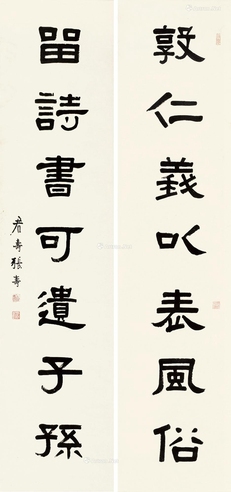 敦仁義以表風俗
留詩書可遺子孫
張壽